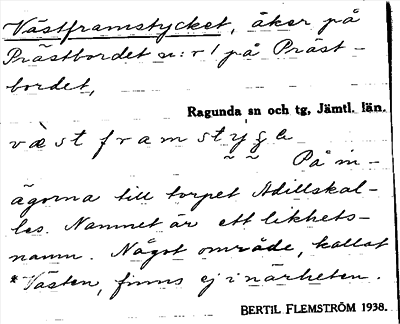 Västframstycket, åker på
Prästbordet n:r 1 på Präst-
bordet,
Ragunda sn och tg, Jämtl. län.
väst framstyga
På in-
ägorna till torpet Adillskal-
les. Namnet är ett likhets-
namn. Något område, kallat
*Västen, finns ej i närheten.
BERTIL FLEMSTRÖM 1938.